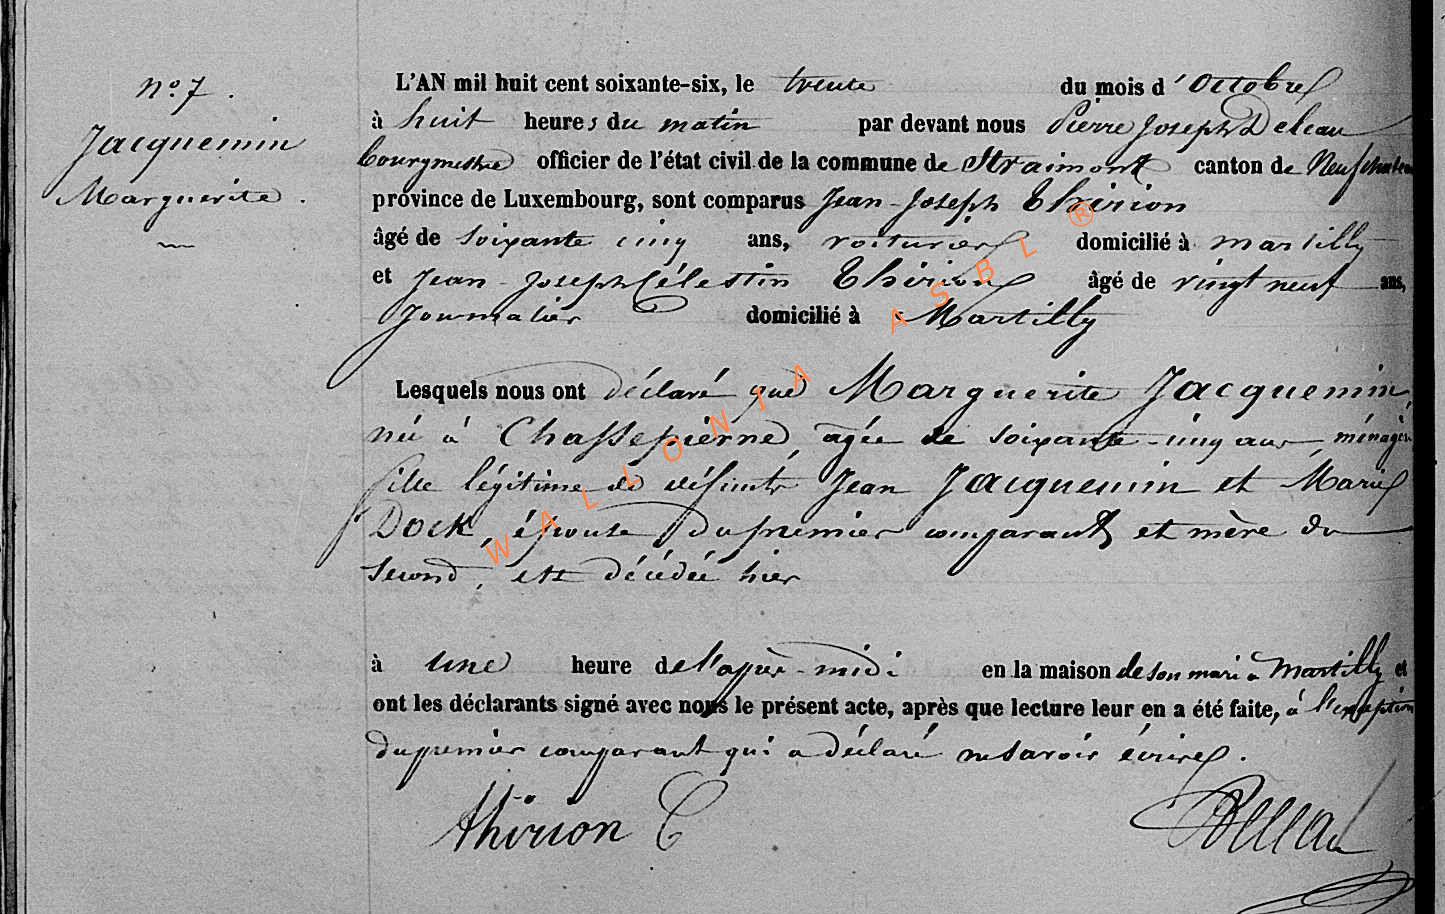 N° 7.
Jacquemin
Marguerite.
L'AN mil huit cent soixante-six, le trente du mois d'Octobre
à huit heures du matin par devant nous Pierre Joseph Deleau
bourgmestre officier de l'état civil de la commune de Straimont canton de Neufchateau
province de Luxembourg, sont comparus Jean-Joseph Thirion
âgé de soixante cinq ans, voiturier domicilié à Martilly
et Jean-Joseph Célestin Thirion âgé de vingt neuf ans,
Journalier domicilié à Martilly
Lesquels nous ont déclaré que Marguerite Jacquemin,
née à Chassepierre, agée de soixante-cinq ans, ménagère
fille légitime de défunts Jean Jacquemin et Marie
Dock, épouse du premier comparant et mère du
second, est décédée hier
à une heure de l'après-midi en la maison de son mari à Martilly et
ont les déclarants signé avec nous le présent acte, après que lecture leur en a été faite, à l'exception
du premier comparant qui a déclaré ne savoir écrire.
Thirion C
Deleau
WALLONIA ASBL ®